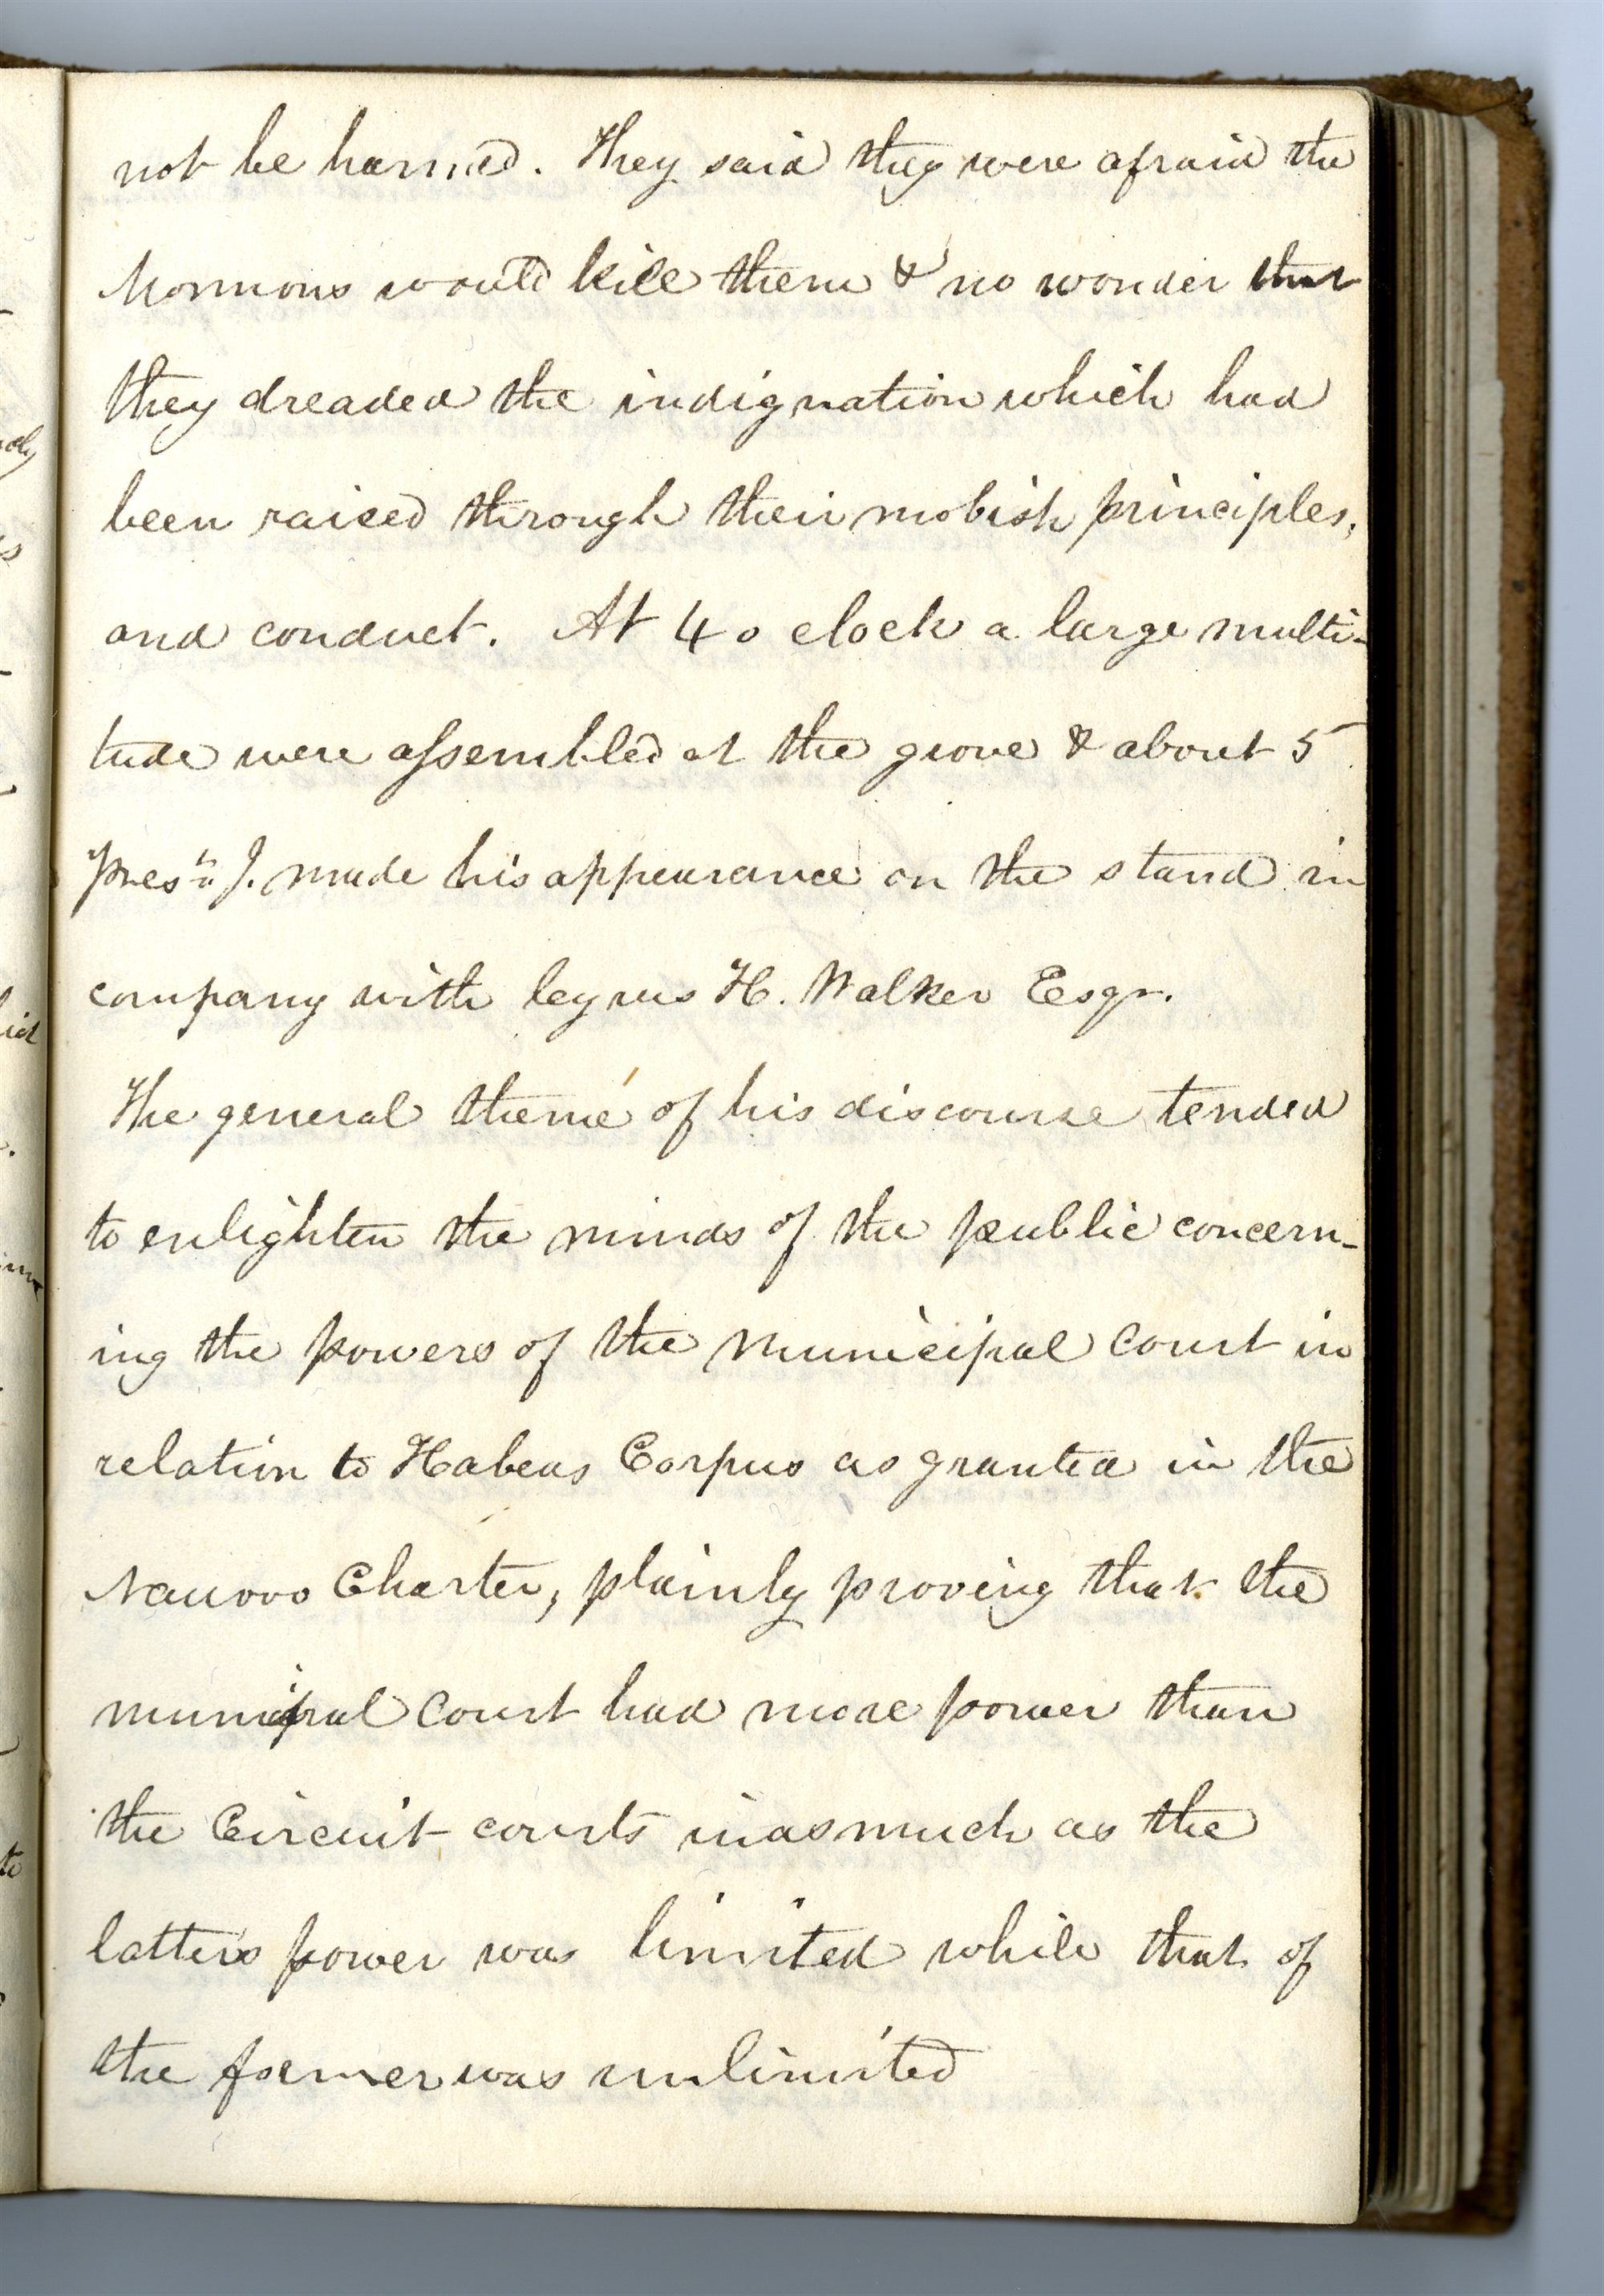 not be harmed. They said they were afraid the
Mormons would kill them & no wonder that
they dreaded the indignation which had
been raised through their mobish principles,
and conduct. At 4 o clock a large multi-
tude were assembled at the grove & about 5
Pres.t J. made his appearance on the stand in
company with Cyrus H. Walker Esqr.
The general theme of his discourse tended
to enlighten the minds of the public concern-
ing the powers of the Municipal Court in
relation to Habeas Corpus as granted in the
Nauvoo Charter, plainly proving that the
municipal Court had more power than
the Circuit courts inasmuch as the
latters power was limited while that of
the former was unlimited